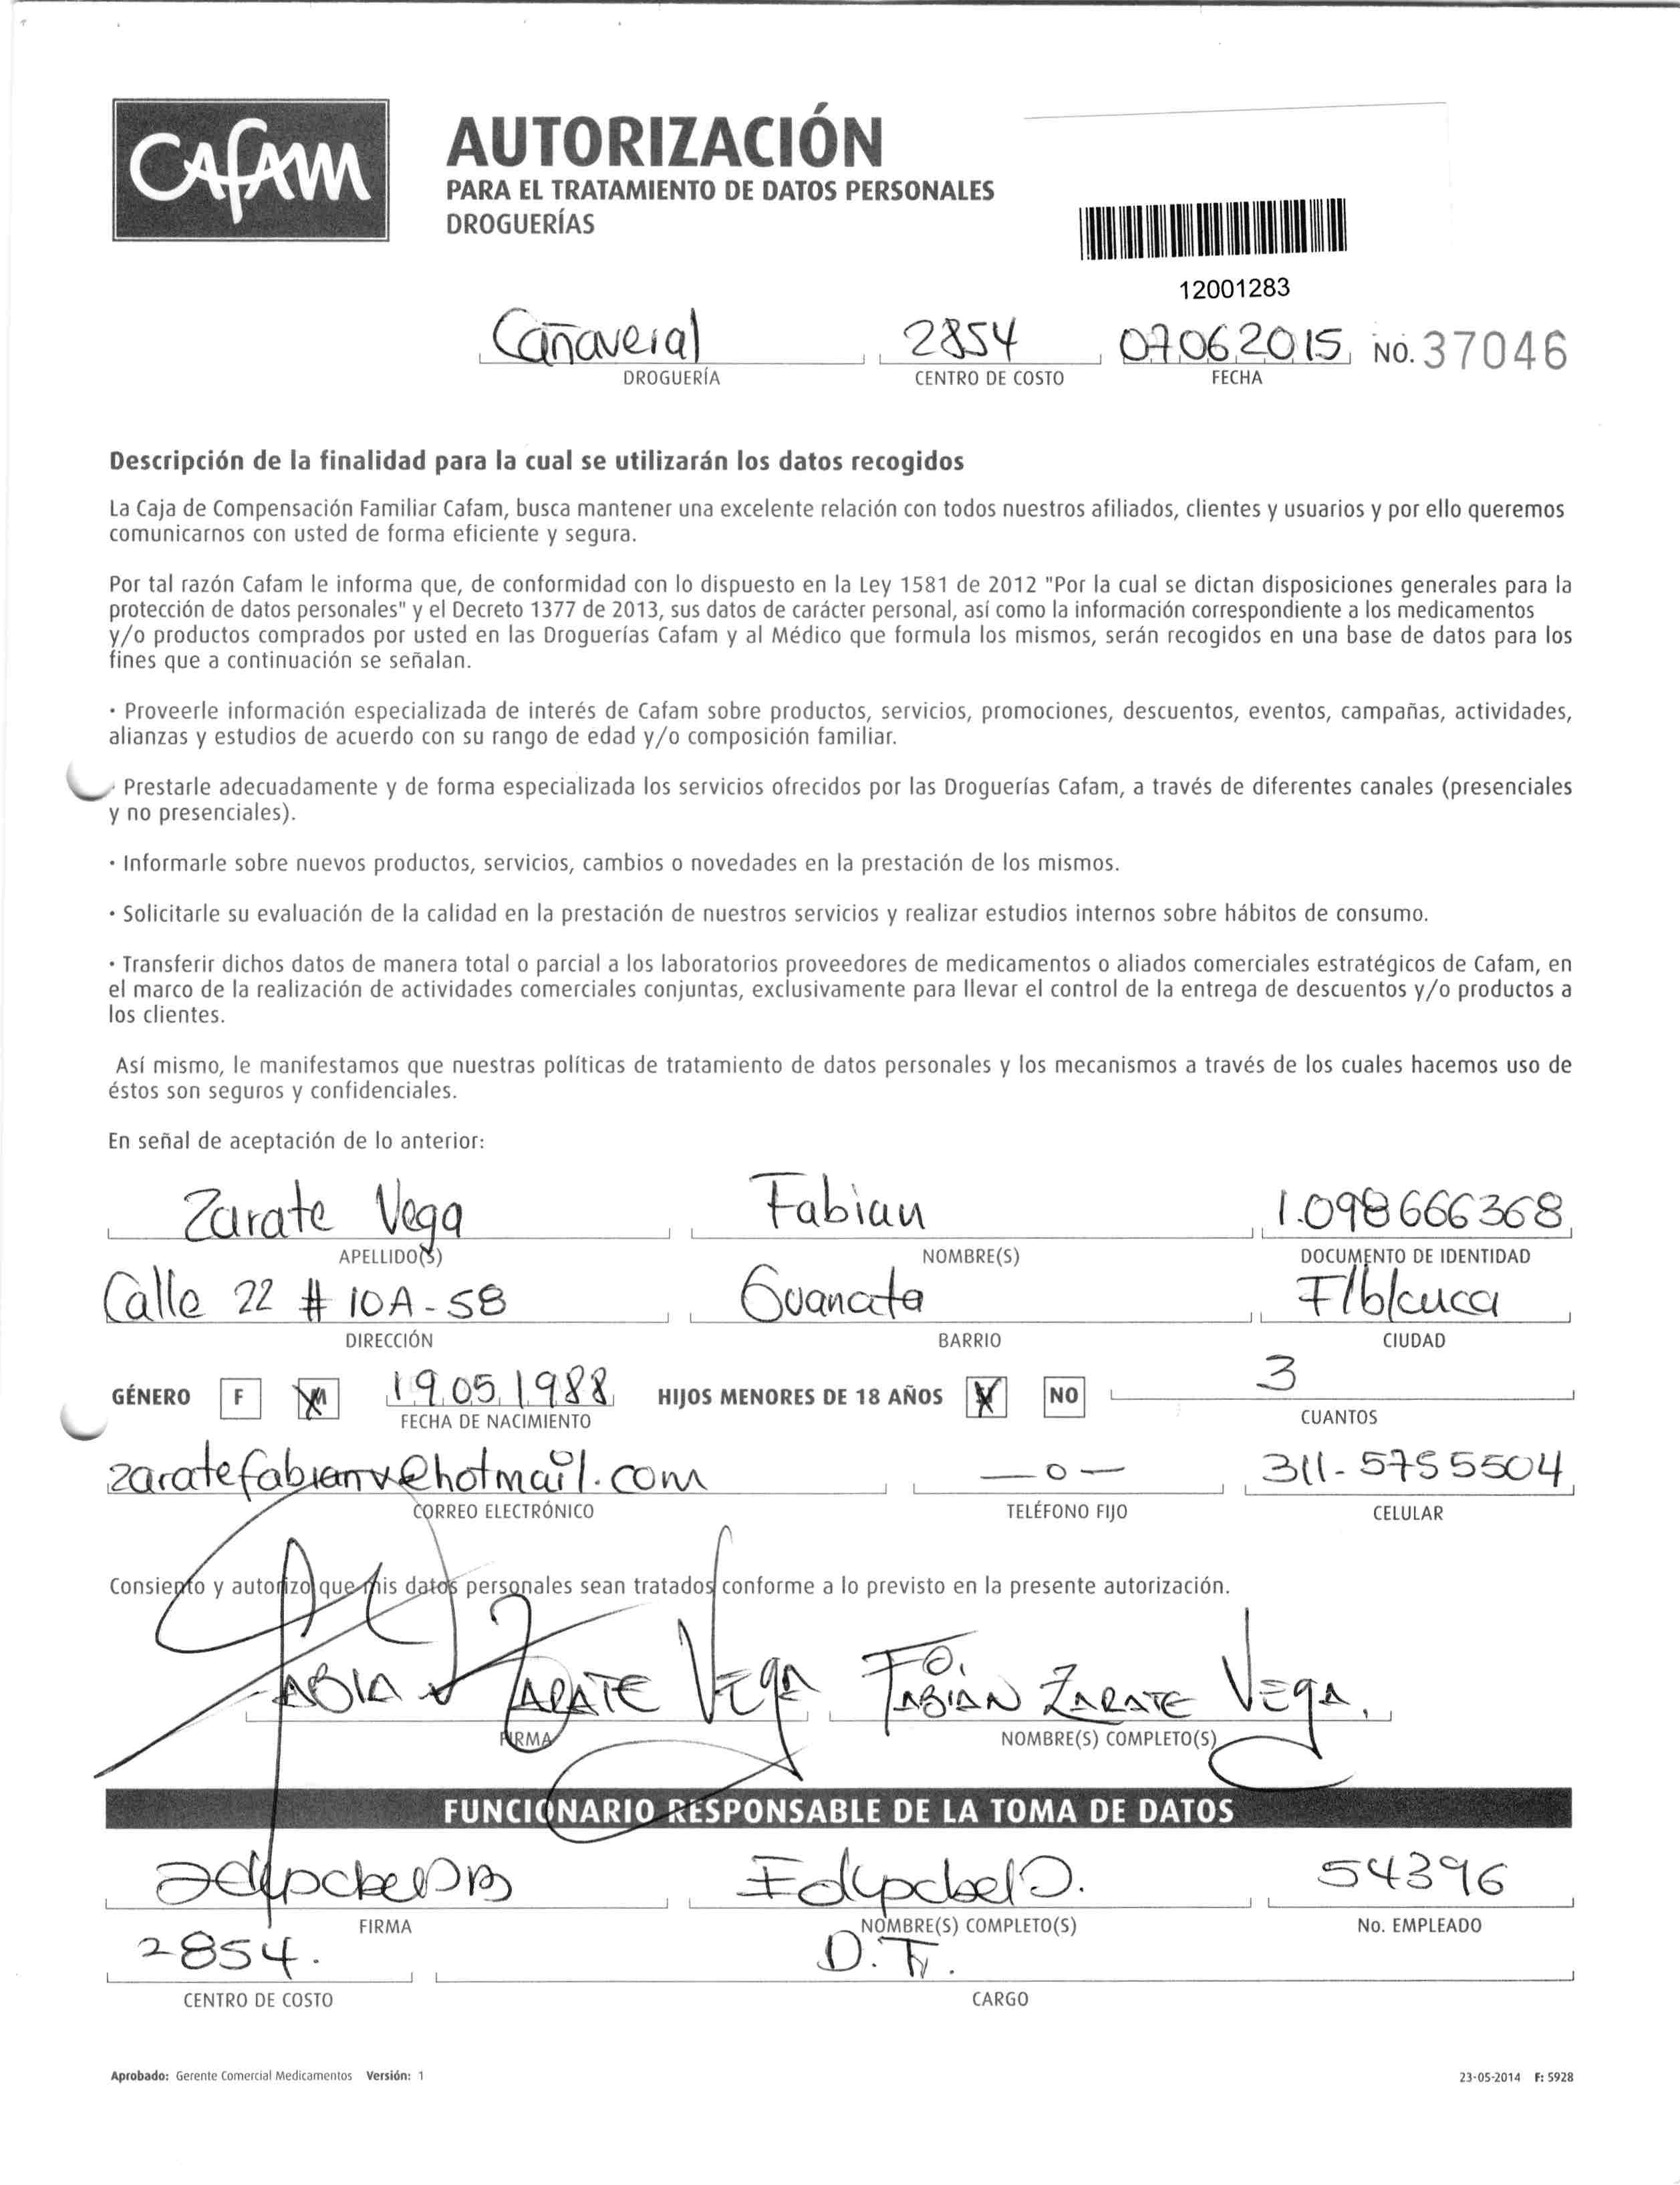 Cafam
AUTORIZACIÓN
PARA EL TRATAMIENTO DE DATOS PERSONALES
DROGUERÍAS
12001283
Cañaveral 2854 07062015 NO. 37046
DROGUERÍA CENTRO DE COSTO FECHA
Descripción de la finalidad para la cual se utilizarán los datos recogidos
La Caja de Compensación Familiar Cafam, busca mantener una excelente relación con todos nuestros afiliados, clientes y usuarios y por ello queremos
comunicarnos con usted de forma eficiente y segura.
Por tal razón Cafam le informa que, de conformidad con lo dispuesto en la Ley 1581 de 2012 "Por la cual se dictan disposiciones generales para la
protección de datos personales" y el Decreto 1377 de 2013, sus datos de carácter personal, así como la información correspondiente a los medicamentos
y/o productos comprados por usted en las Droguerías Cafam y al Médico que formula los mismos, serán recogidos en una base de datos para los
fines que a continuación se señalan.
· Proveerle información especializada de interés de Cafam sobre productos, servicios, promociones, descuentos, eventos, campañas, actividades,
alianzas y estudios de acuerdo con su rango de edad y/o composición familiar.
· Prestarle adecuadamente y de forma especializada los servicios ofrecidos por las Droguerías Cafam, a través de diferentes canales (presenciales
y no presenciales).
· Informarle sobre nuevos productos, servicios, cambios o novedades en la prestación de los mismos.
· Solicitarle su evaluación de la calidad en la prestación de nuestros servicios y realizar estudios internos sobre hábitos de consumo.
· Transferir dichos datos de manera total o parcial a los laboratorios proveedores de medicamentos o aliados comerciales estratégicos de Cafam, en
el marco de la realización de actividades comerciales conjuntas, exclusivamente para llevar el control de la entrega de descuentos y/o productos a
los clientes.
Así mismo, le manifestamos que nuestras políticas de tratamiento de datos personales y los mecanismos a través de los cuales hacemos uso de
éstos son seguros y confidenciales.
En señal de aceptación de lo anterior:
Zarate Vega Fabian 1.098666368
APELLIDO(S) NOMBRE(S) DOCUMENTO DE IDENTIDAD
Calle 22 # 10A-58 Guanata F/blauca
DIRECCIÓN BARRIO CIUDAD
GÉNERO F M 19.05.1988 HIJOS MENORES DE 18 AÑOS NO 3
FECHA DE NACIMIENTO CUANTOS
zaratefabianv@hotmail.com —o— 311-5755504
CORREO ELECTRÓNICO TELÉFONO FIJO CELULAR
Consiento y autorizo que mis datos personales sean tratados conforme a lo previsto en la presente autorización.
FABIAN ZARATE VEGA FABIAN ZARATE VEGA.
FIRMA NOMBRE(S) COMPLETO(S)
FUNCIONARIO RESPONSABLE DE LA TOMA DE DATOS
54396
FIRMA NOMBRE(S) COMPLETO(S) No. EMPLEADO
2854. D.T.
CENTRO DE COSTO CARGO
Aprobado: Gerente Comercial Medicamentos Versión: 1 23-05-2014 F: 5928